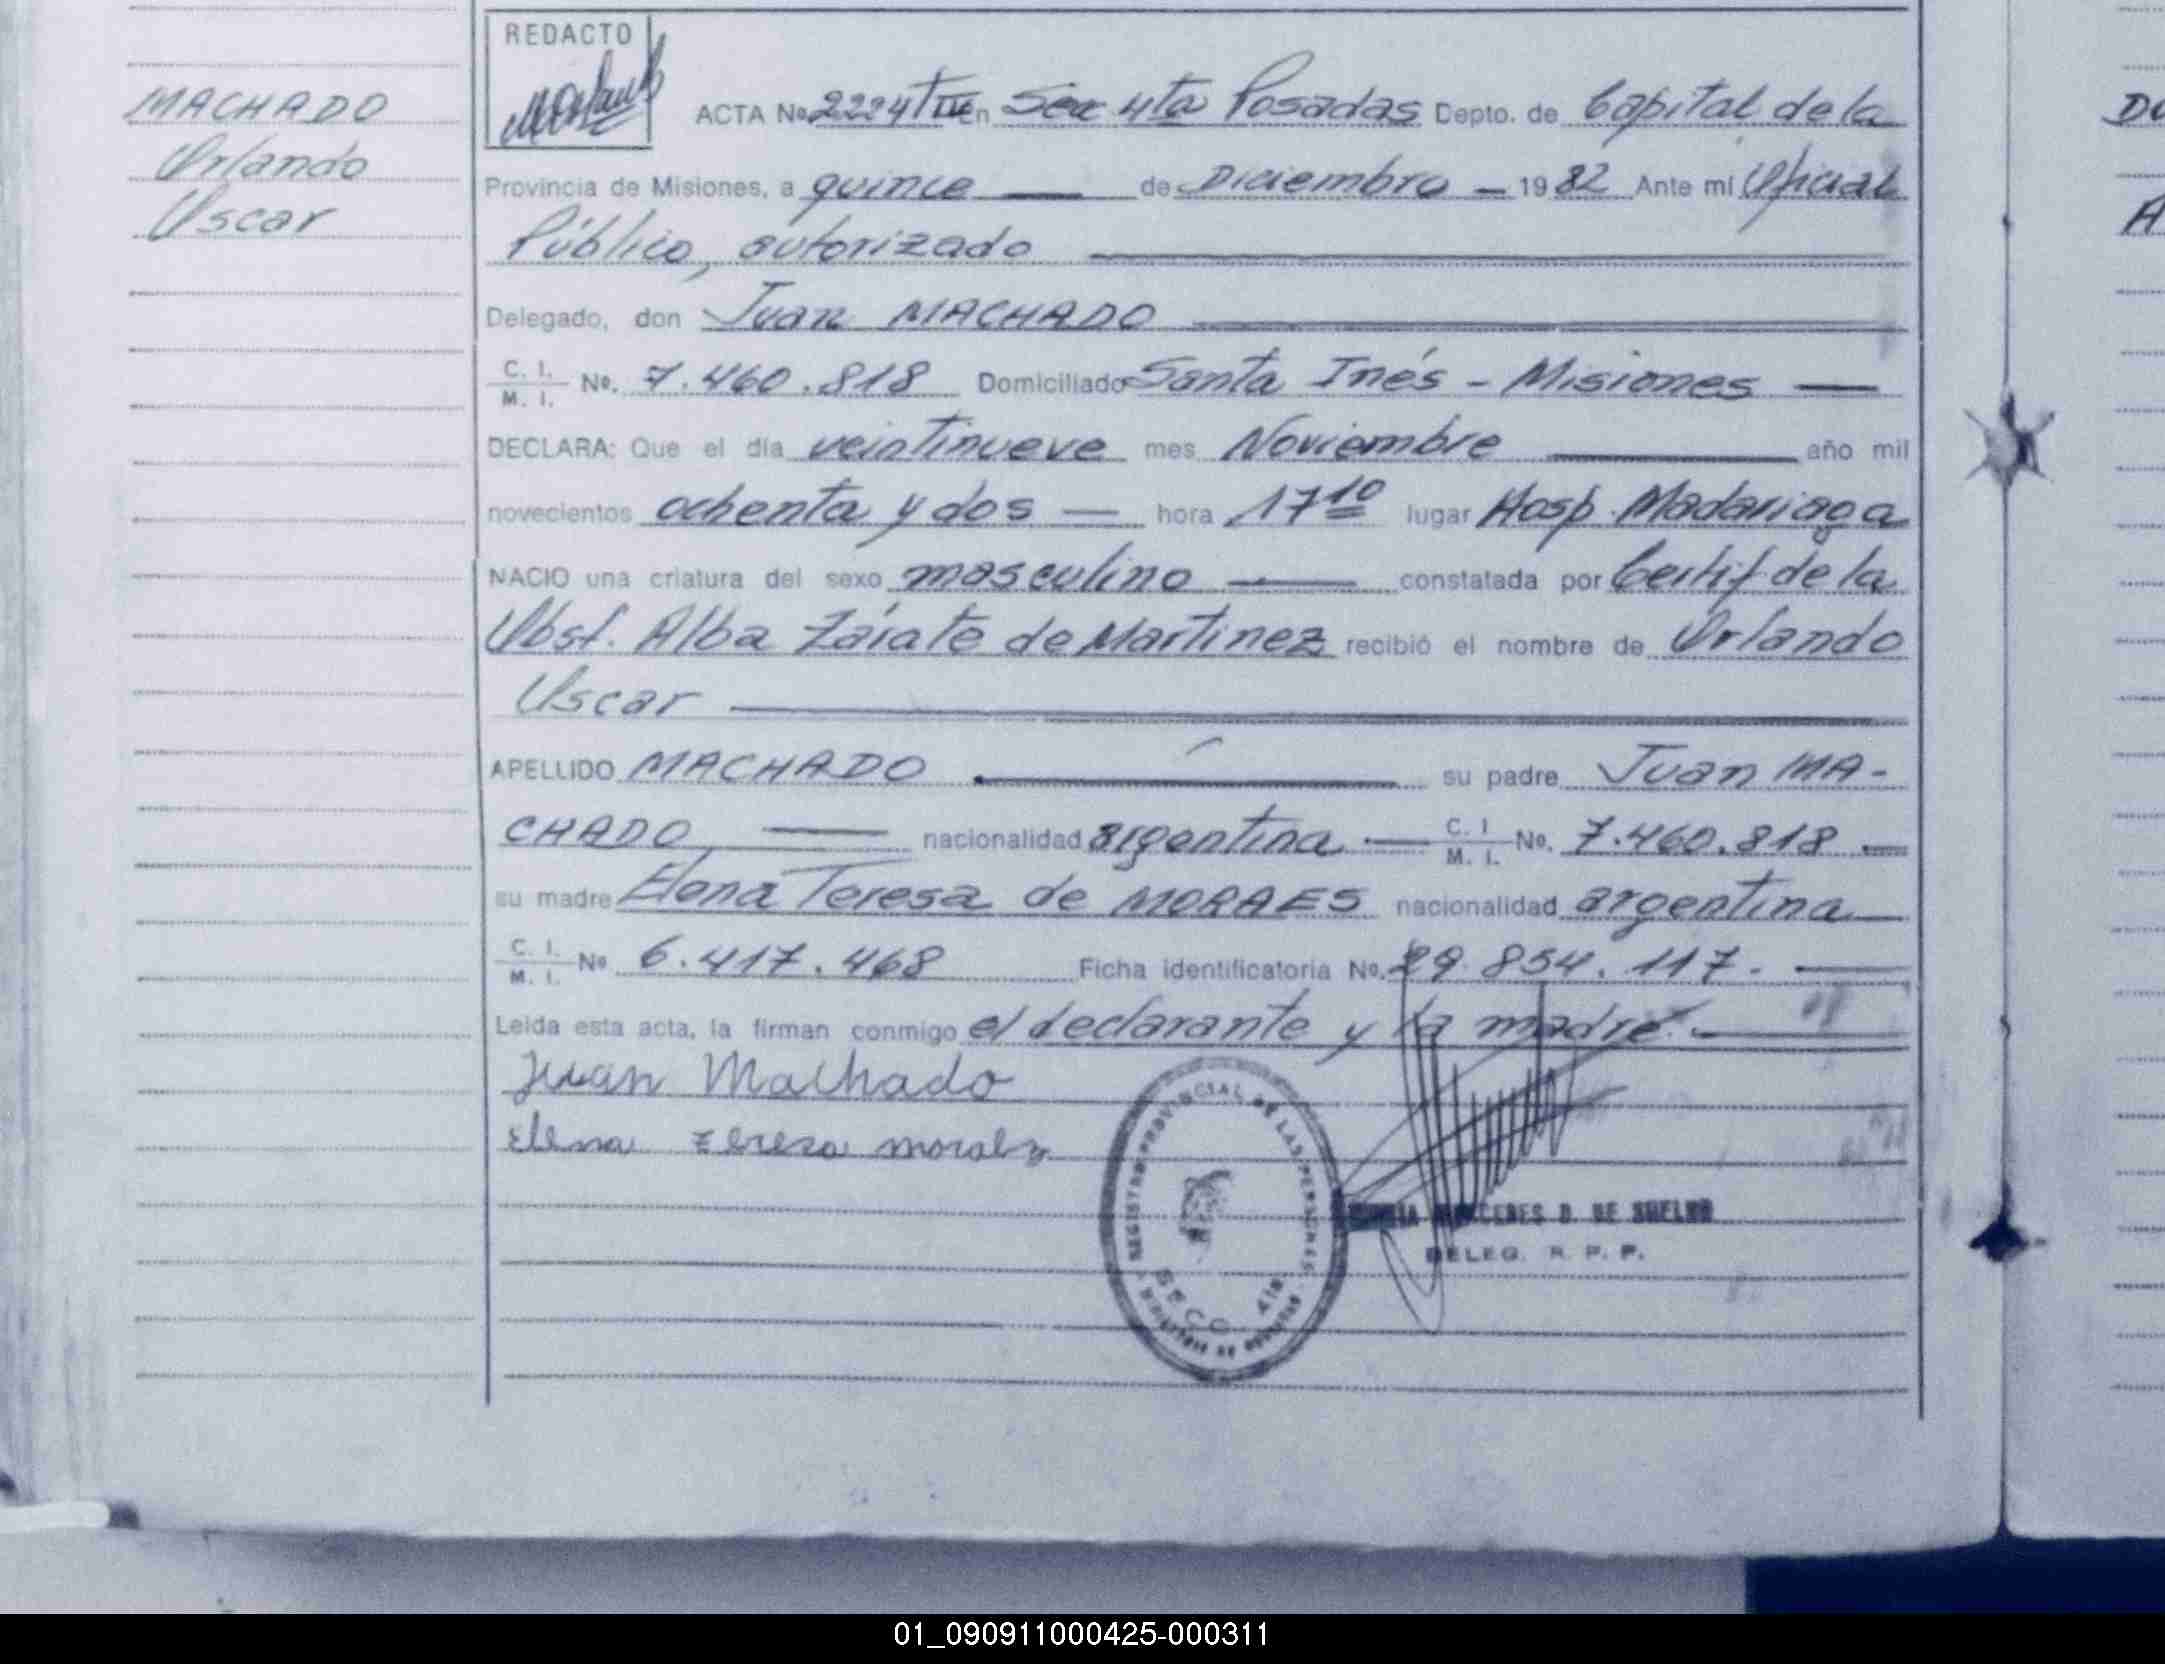 REDACTO
MACHADO
Orlando
Oscar
ACTA No 2224 TIII En Sec 4ta Posadas Depto. de Capital de la
Provincia de Misiones, a quince — de Diciembre — 1982 Ante mí Oficial
Público, autorizado
Delegado, don Juan MACHADO
C. I. / M. I. No. 7.460.818 Domiciliado Santa Inés - Misiones —
DECLARA: Que el día veintinueve mes Noviembre — año mil
novecientos ochenta y dos — hora 17 10 lugar Hosp. Madariaga
NACIO una criatura del sexo masculino — constatada por Certif. de la
Obst. Alba Zárate de Martinez recibió el nombre de Orlando
Oscar
APELLIDO MACHADO — su padre Juan MA-
CHADO — nacionalidad argentina — C. I / M. I. No. 7.460.818 —
su madre Elena Teresa de MORAES nacionalidad argentina
C. I. / M. I. No 6.417.468 Ficha identificatoria No. 29.854.117. —
Leída esta acta, la firman conmigo el declarante y la madre. —
Juan Machado
Elena Tereza moraez
REGISTRO PROVINCIAL DE LAS PERSONAS
SECC. 4ta
MERCEDES D. DE
DELEG. R. P. P.
DU
A
01_090911000425-000311